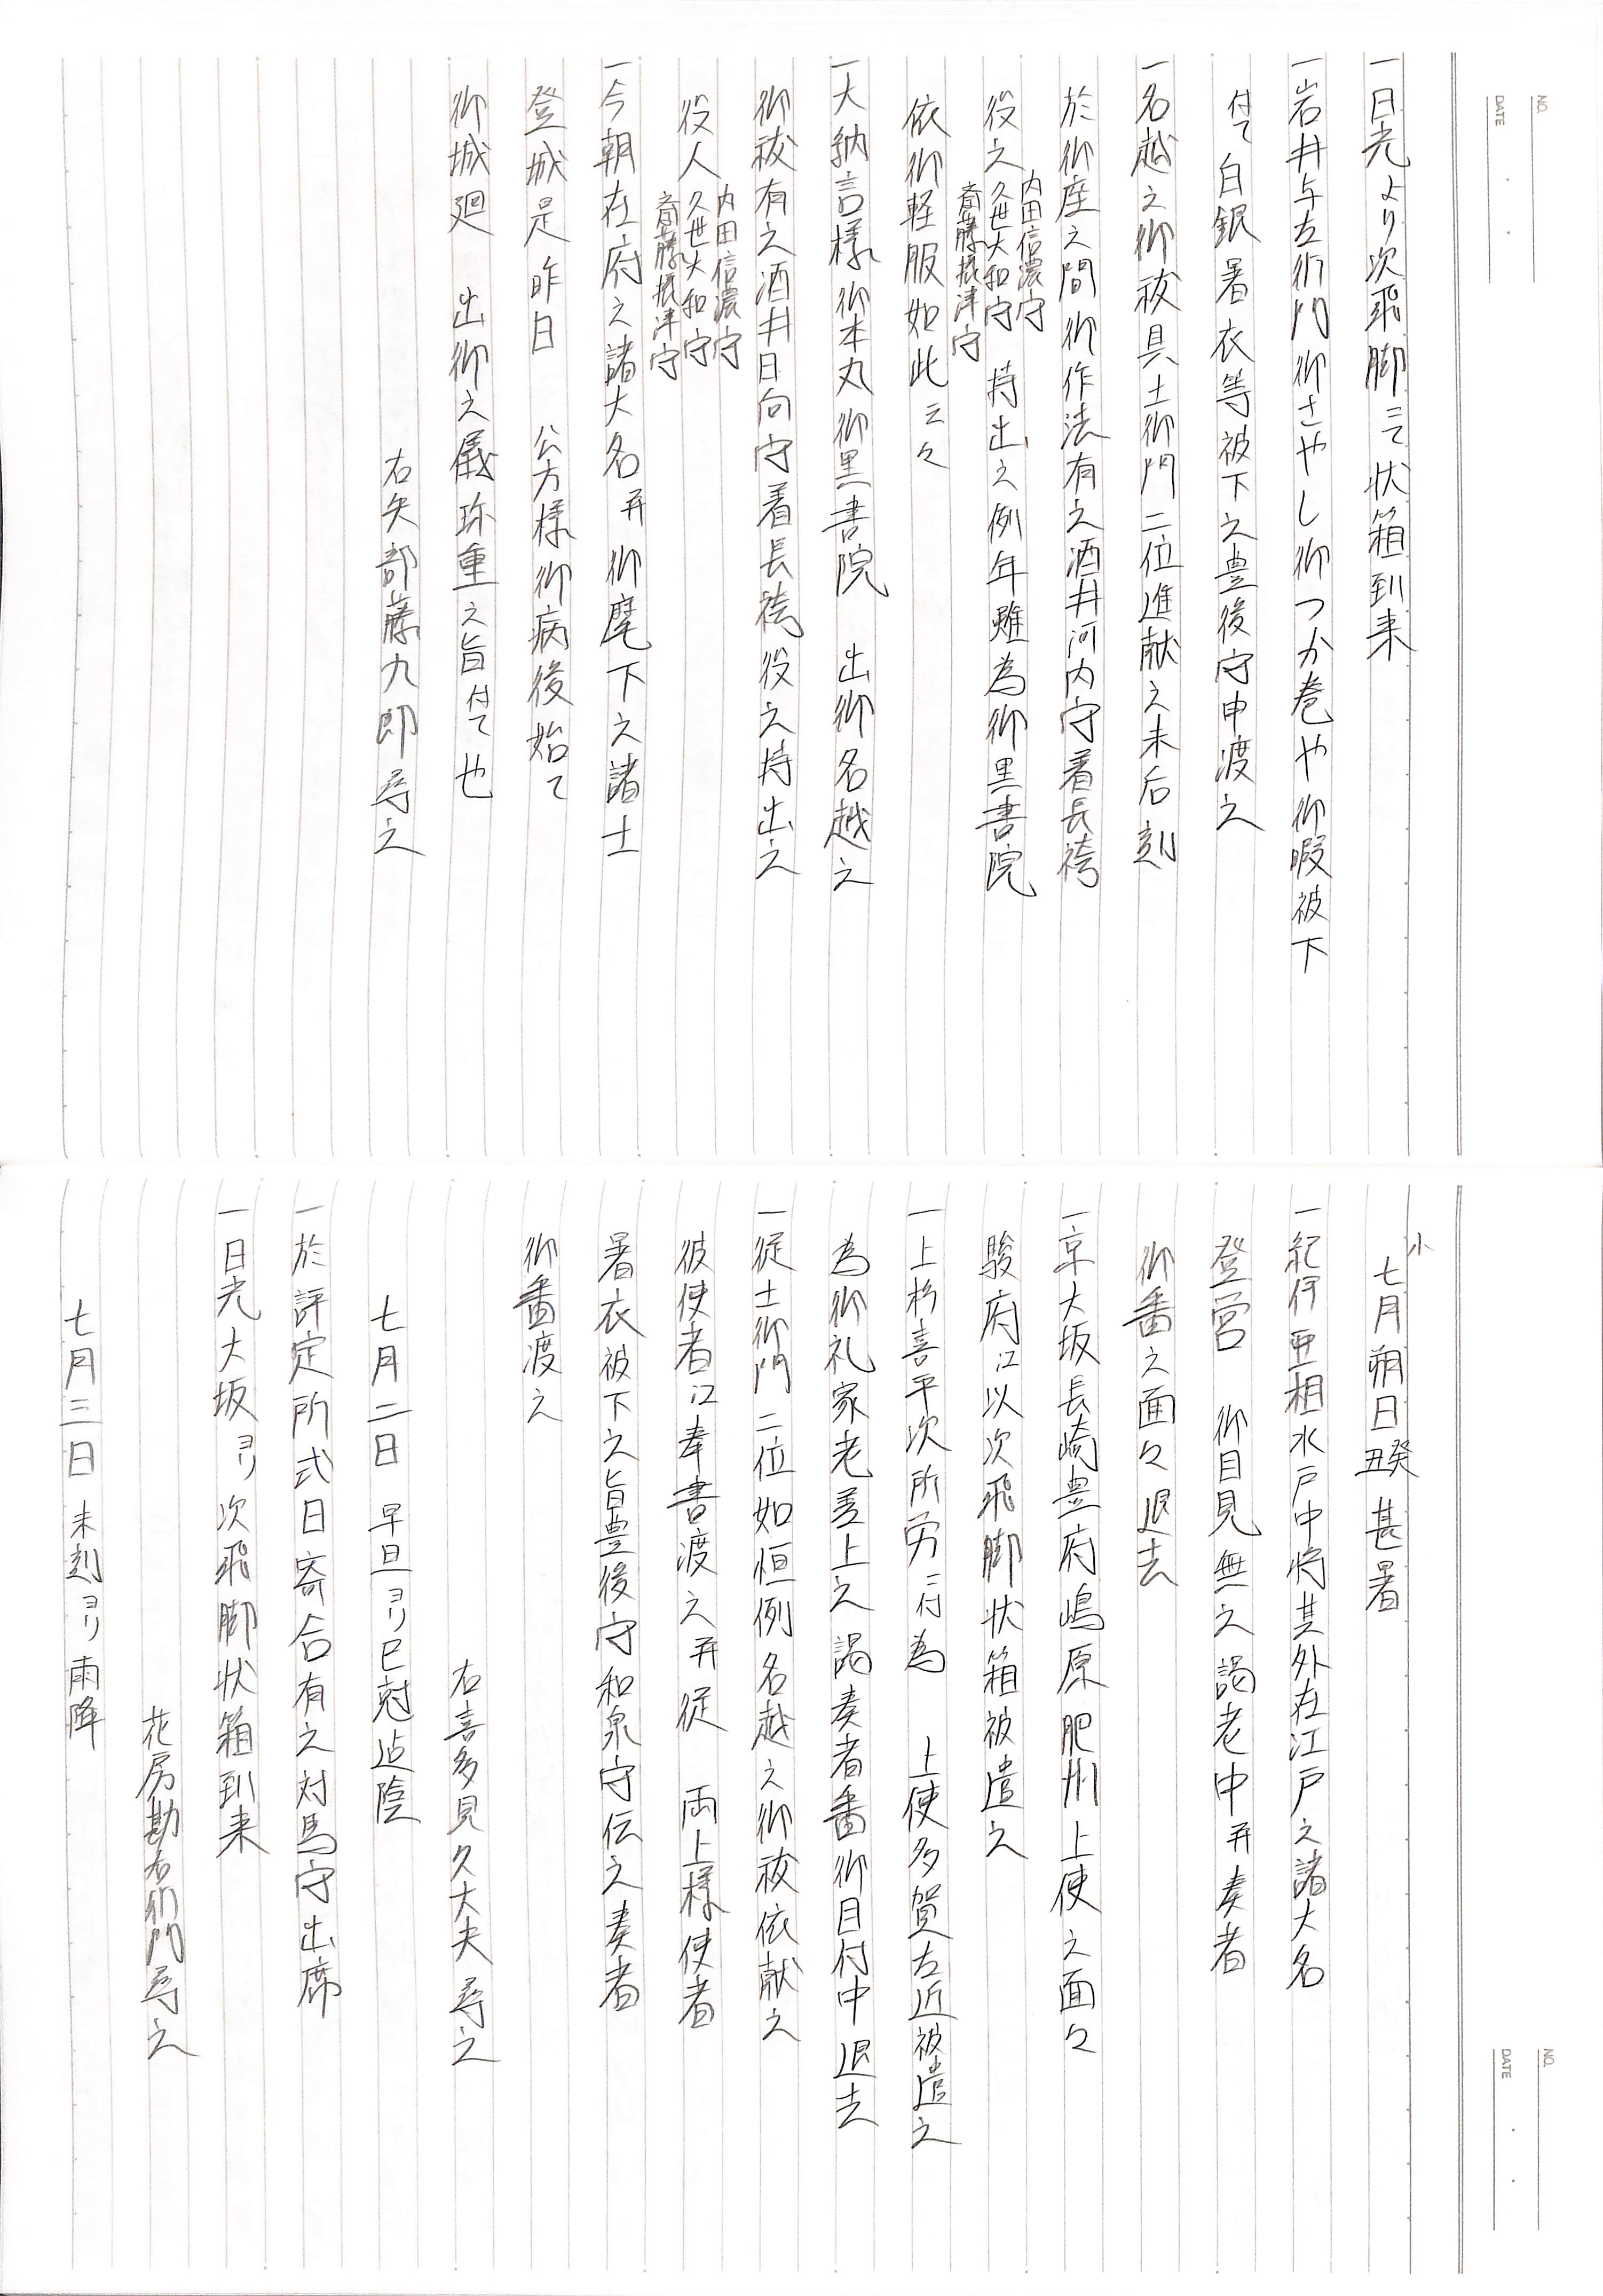 NO.
DATE
一日光より次飛脚ニて状箱到来
一岩井与左衛門御さやし御つか巻や御暇被下
付て白銀暑衣等被下之豊後守申渡之
一名越之御祓具土御門二位進献之未后刻
於御座之間御作法有之酒井河内守着長袴
役之内田信濃守久世大和守斎藤摂津守 持出之例年雖為御黒書院
依御軽服如此云々
一大納言様御本丸御黒書院 出御名越之
御祓有之酒井日向守着長袴役之持出之
役人内田信濃守久世大和守斎藤摂津守
一今朝在府之諸大名并御麾下之諸士
登城是昨日 公方様御病後始て
御城廻 出御之儀珍重之旨付て也
右矢部藤九郎尋之
NO.
DATE
小
七月朔日癸丑甚暑
一紀伊亜相水戸中将其外在江戸之諸大名
登営 御目見無之謁老中并奏者
御番之面々退去
一京大坂長崎豊府嶋原肥州上使之面々
駿府江以次飛脚状箱被遣之
一上杉喜平次所労ニ付為 上使多賀左近被遣之
為御礼家老差上之謁奏者番御目付中退去
一従土御門二位如恒例名越之御祓依献之
彼使者江奉書渡之并従 両上様使者
暑衣被下之旨豊後守和泉守伝之奏者
御番渡之
右喜多見久大夫尋之
七月二日 早旦ヨリ巳尅迄陰
一於評定所式日寄合有之対馬守出席
一日光大坂ヨリ次飛脚状箱到来
花房勘右衛門尋之
七月三日 未刻ヨリ雨降